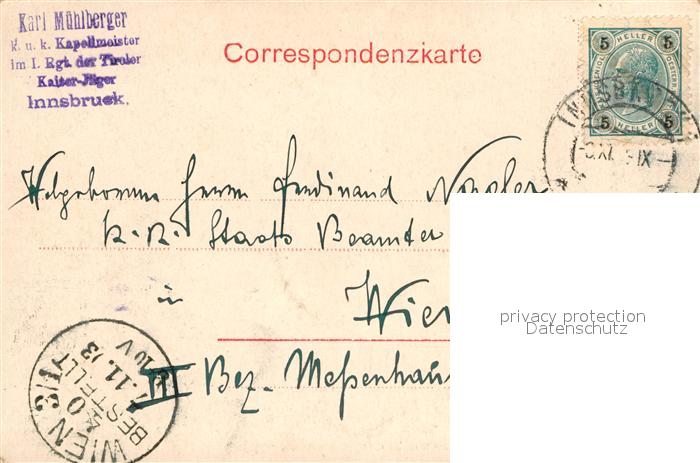 Karl Mühlberger
k. u. k. Kapellmeister
im I. Rgt. der Tiroler
Kaiser-Jäger
Innsbruck.
Correspondenzkarte
5 HELLER 5
5 HELLER 5
INNSBRUCK
Herrn Ferdinand
k. k. Staats Beamter
in
Wien
III Bez. Meßenhaus
WIEN 3/1
BESTELLT
privacy protection
Datenschutz